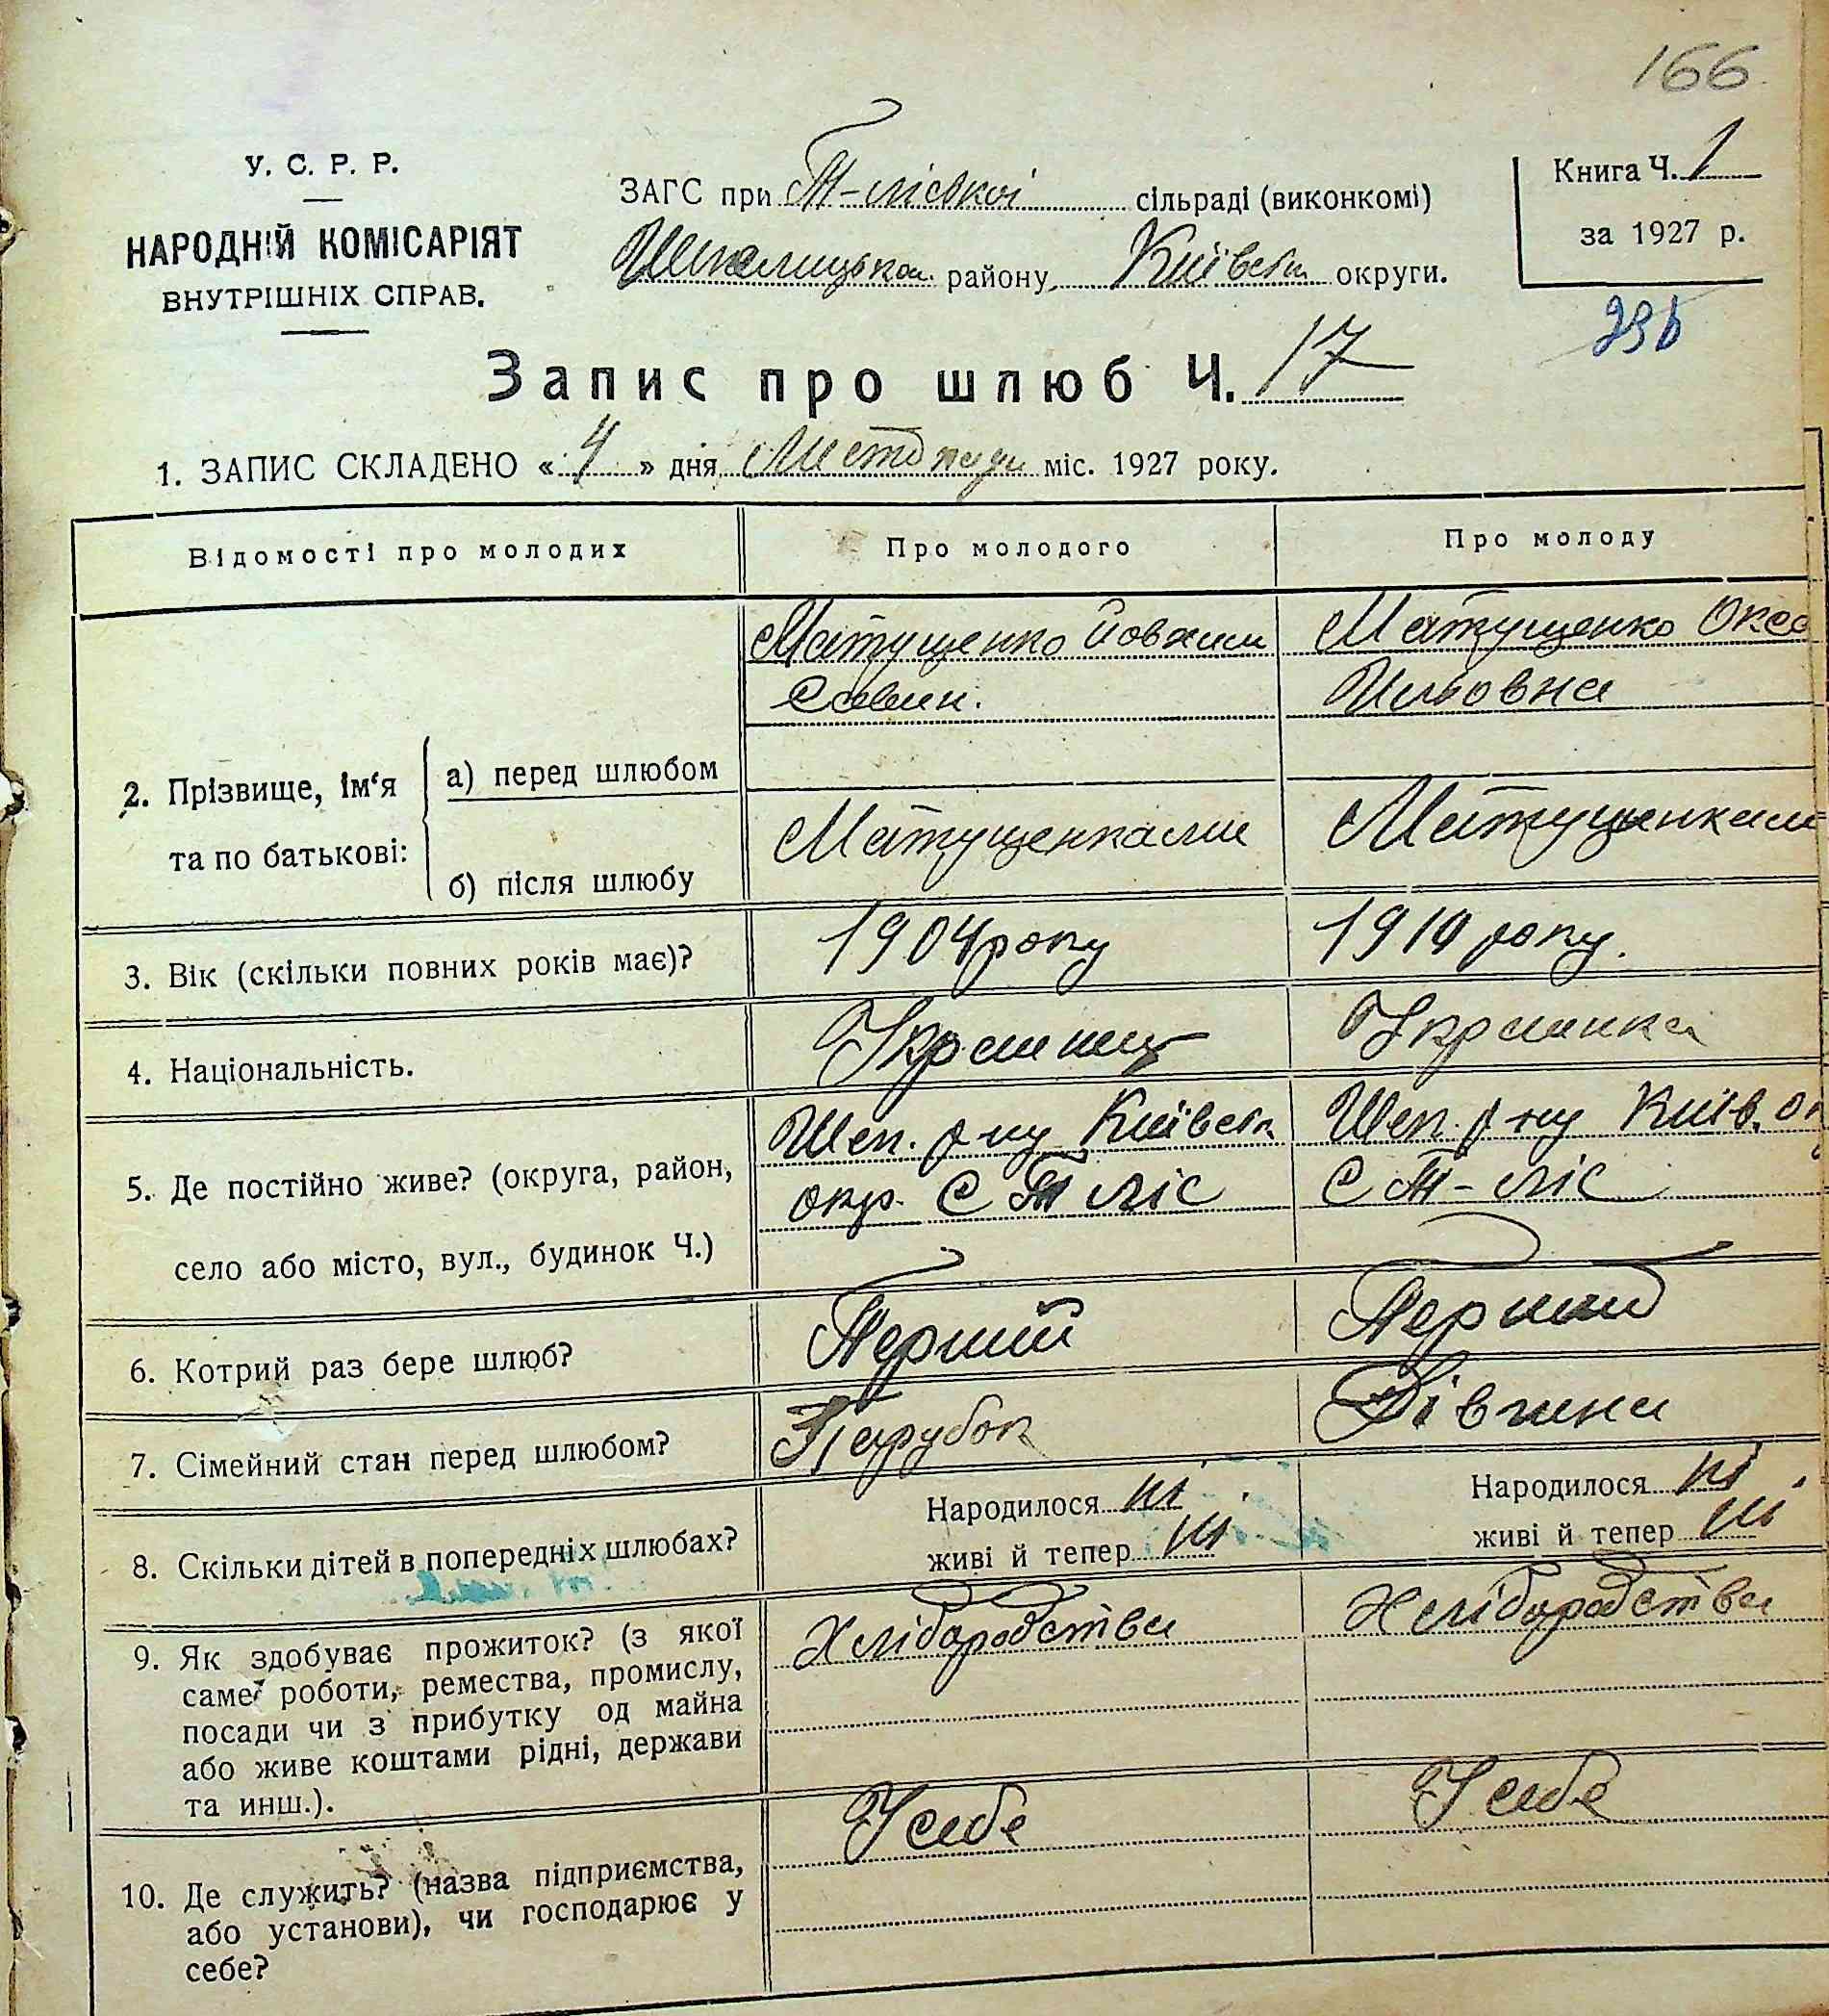 166
У. С. Р. Р.
НАРОДНІЙ КОМІСАРІЯТ
ВНУТРІШНІХ СПРАВ.
ЗАГС при Т-ліській сільраді (виконкомі)
району Київськ округи.
Книга Ч. 1
за 1927 р.
Запис про шлюб Ч. 17
1. ЗАПИС СКЛАДЕНО « 4 » дня Листопада міс. 1927 року.
Відомості про молодих
Про молодого
Про молоду
2. Прізвище, ім‘я та по батькові:
а) перед шлюбом
Матущенко Йовхим
Савин.
Матущенко Окса
Ильовна
б) після шлюбу
Матущенками
Матущенками
3. Вік (скільки повних років має)?
1904 року
1910 року.
4. Національність.
Украинец
Украинка
5. Де постійно живе? (округа, район,
село або місто, вул., будинок Ч.)
Шеп. р-ну Київськ
окр. С Т ліс
Шеп. р-ну Київ. ок
С Т-ліс
6. Котрий раз бере шлюб?
Перший
Перший
7. Сімейний стан перед шлюбом?
Парубок
Дівчина
8. Скільки дітей в попередніх шлюбах?
Народилося ні
живі й тепер ні
Народилося ні
живі й тепер ні
9. Як здобуває прожиток? (з якої
саме роботи, ремества, промислу,
посади чи з прибутку од майна
або живе коштами рідні, держави
та инш.).
Хлібародства
Хлібародства
10. Де служить? (назва підприємства,
або установи), чи господарює у
себе?
У себе
У себе